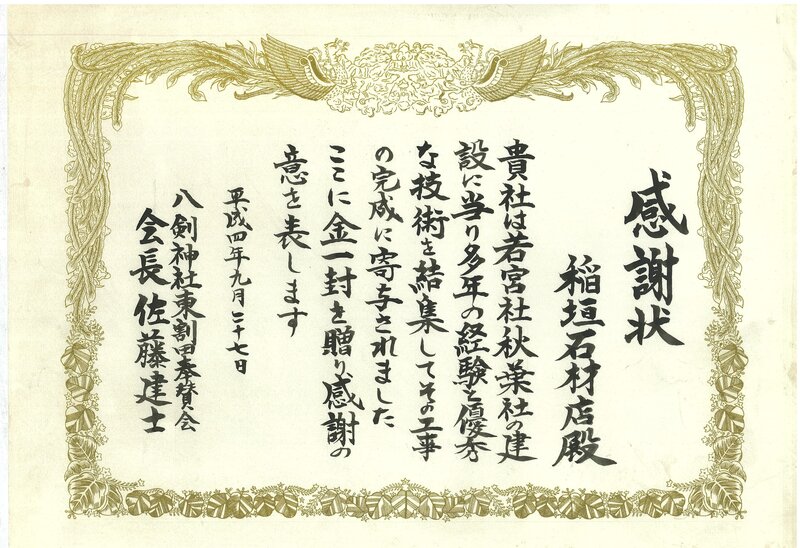 感謝状
稲垣石材店殿
貴社は若宮社秋葉社の建
設に当り多年の経験と優秀
な技術を結集してその工事
の完成に寄与されました
ここに金一封を贈り、感謝の
意を表します
平成四年九月二十七日
八剣神社東割田奉賛会
会長佐藤建士